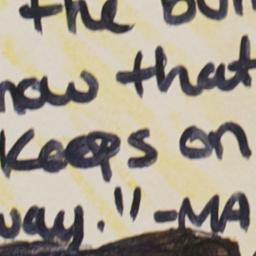 the bull
now that
keeps on
way."-MA